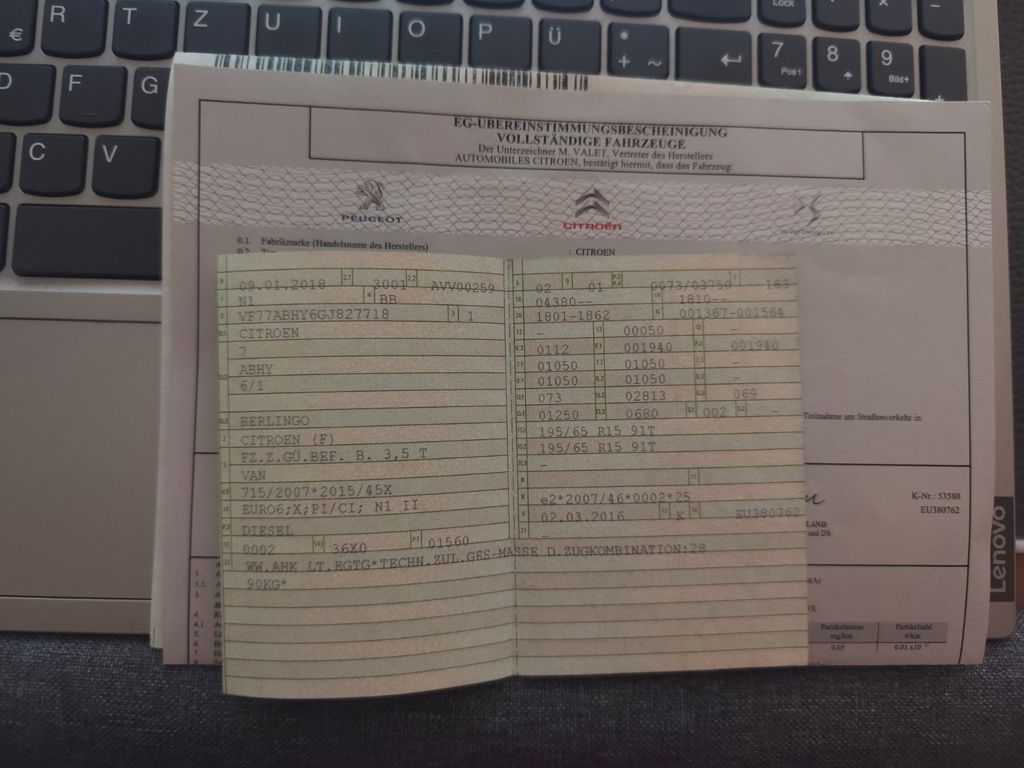 € R T Z U I O P Ü * + ~ Lock
7 Pos1 8 9 Bild
D F G
C V
EG-ÜBEREINSTIMMUNGSBESCHEINIGUNG
VOLLSTÄNDIGE FAHRZEUGE
Der Unterzeichner M. VALET, Vertreter des Herstellers
AUTOMOBILES CITROEN, bestätigt hiermit, dass das Fahrzeug:
PEUGEOT CITROËN
0.1. Fabrikmarke (Handelsname des Herstellers) : CITROEN
0.2
09.01.2018 2.1 3001 2.2 AVV00259
N1 4 BB
VF77ABHY6GJ827718 3 1
CITROEN
7
ABHY
6/1
BERLINGO
CITROEN (F)
FZ.Z.GÜ.BEF. B. 3,5 T
VAN
715/2007*2015/45X
EURO6;X;PI/CI; N1 II
DIESEL
0002 36X0 P.1 01560
WW.AHK LT.EGTG*TECHN.ZUL.GES-MASSE D.ZUGKOMBINATION:28
90KG*
02 9 01 P.2 163
04380-- 1810--
1801-1862 001367-001564
- 00050 -
0112 001940 001940
01050 01050 -
01050 01050 -
073 02813 069
01250 0680 S.1 002 S.2 -
195/65 R15 91T
195/65 R15 91T
-
e2*2007/46*0002*25
02.03.2016 K EU380762
Teilnahme am Straßenverkehr in
K-Nr.: 53580
EU380762
LAND
und OS
Partikelmasse Partikelzahl
mg/km #/km
0.05 0.01 x10
1.
1.1.
3.
4.
4.1
5.
6.
7.
8.
Lenovo